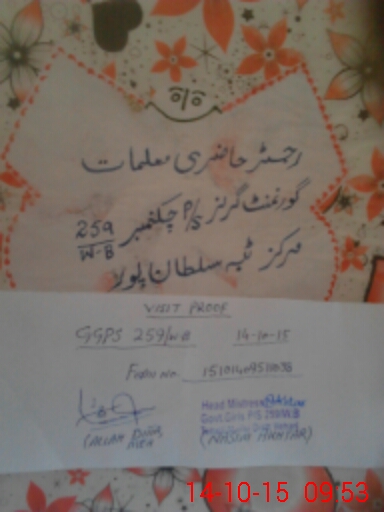 رجسٹر حاضری معلمات
گورنمنٹ گرلز P/S چکنمبر 259/W-B
مرکز ٹبہ سلطان پور
VISIT PROOF
GGPS 259/WB 14-10-15
Form no.
(ALLAH DITTA
AEO)
Head Mistress
Govt. Girls P/S 259/W.B
(NASIM AKHTAR)
14-10-15 09:53